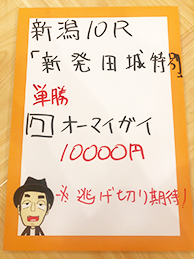 新潟10R
「新発田城特別」
単勝
7 オーマイガイ
10000円
※逃げ切り期待!